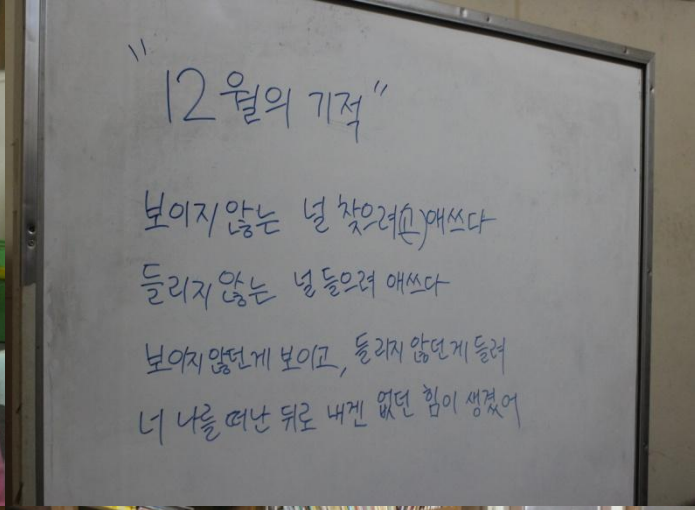 "12월의 기적"
보이지 않는 널 찾으려(고)애쓰다
들리지 않는 널 들으려 애쓰다
보이지 않던게 보이고, 들리지 않던게 들려
너 나를 떠난 뒤로 내겐 없던 힘이 생겼어